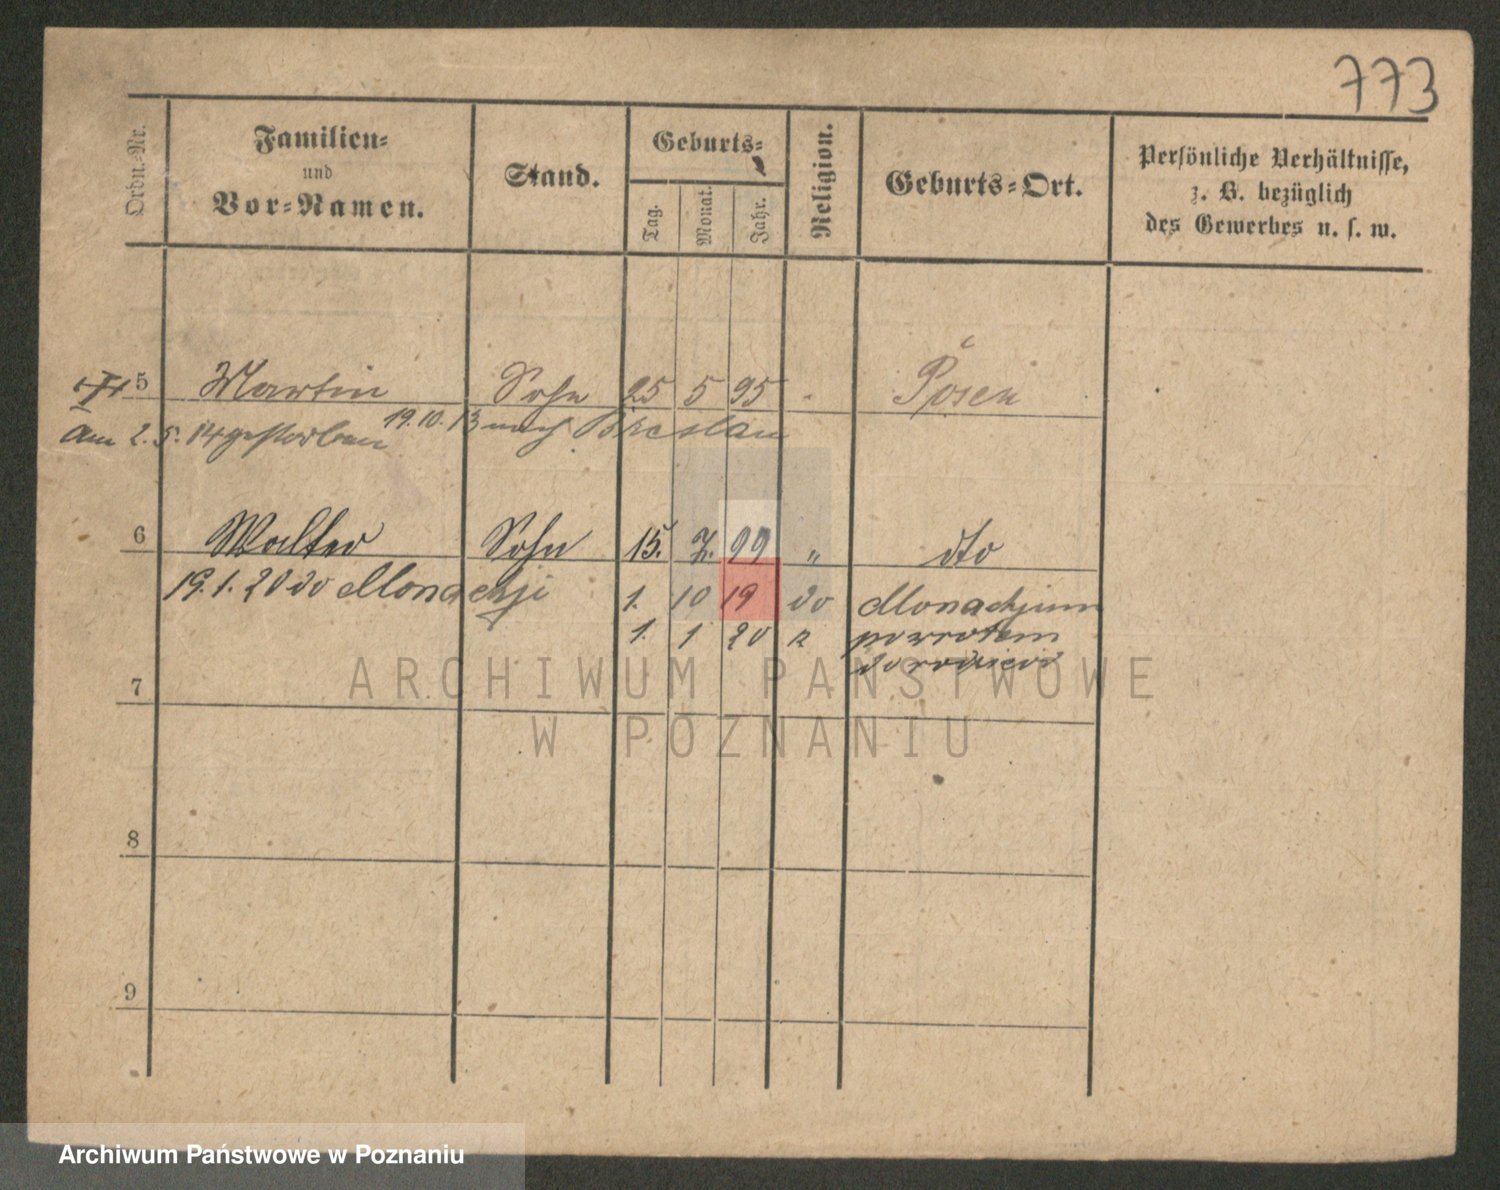 773
Ordn.-Nr.
Familien-
und
Vor-Namen.
Stand.
Geburts-
Tag.
Monat.
Jahr.
Religion.
Geburts-Ort.
Persönliche Verhältnisse,
z. B. bezüglich
des Gewerbes u. s. w.
5 Martin Sohn 25 5 95 Posen
19.10.13 nach Breslau
am 2.5.14 gestorben
6 Walter Sohn 15. 7. 99 " dto
19.1.20 do Monachji 1. 10 19 do Monachjum
1. 1 20 z powrotem
do rodziców
7
8
9
ARCHIWUM PAŃSTWOWE
W POZNANIU
Archiwum Państwowe w Poznaniu